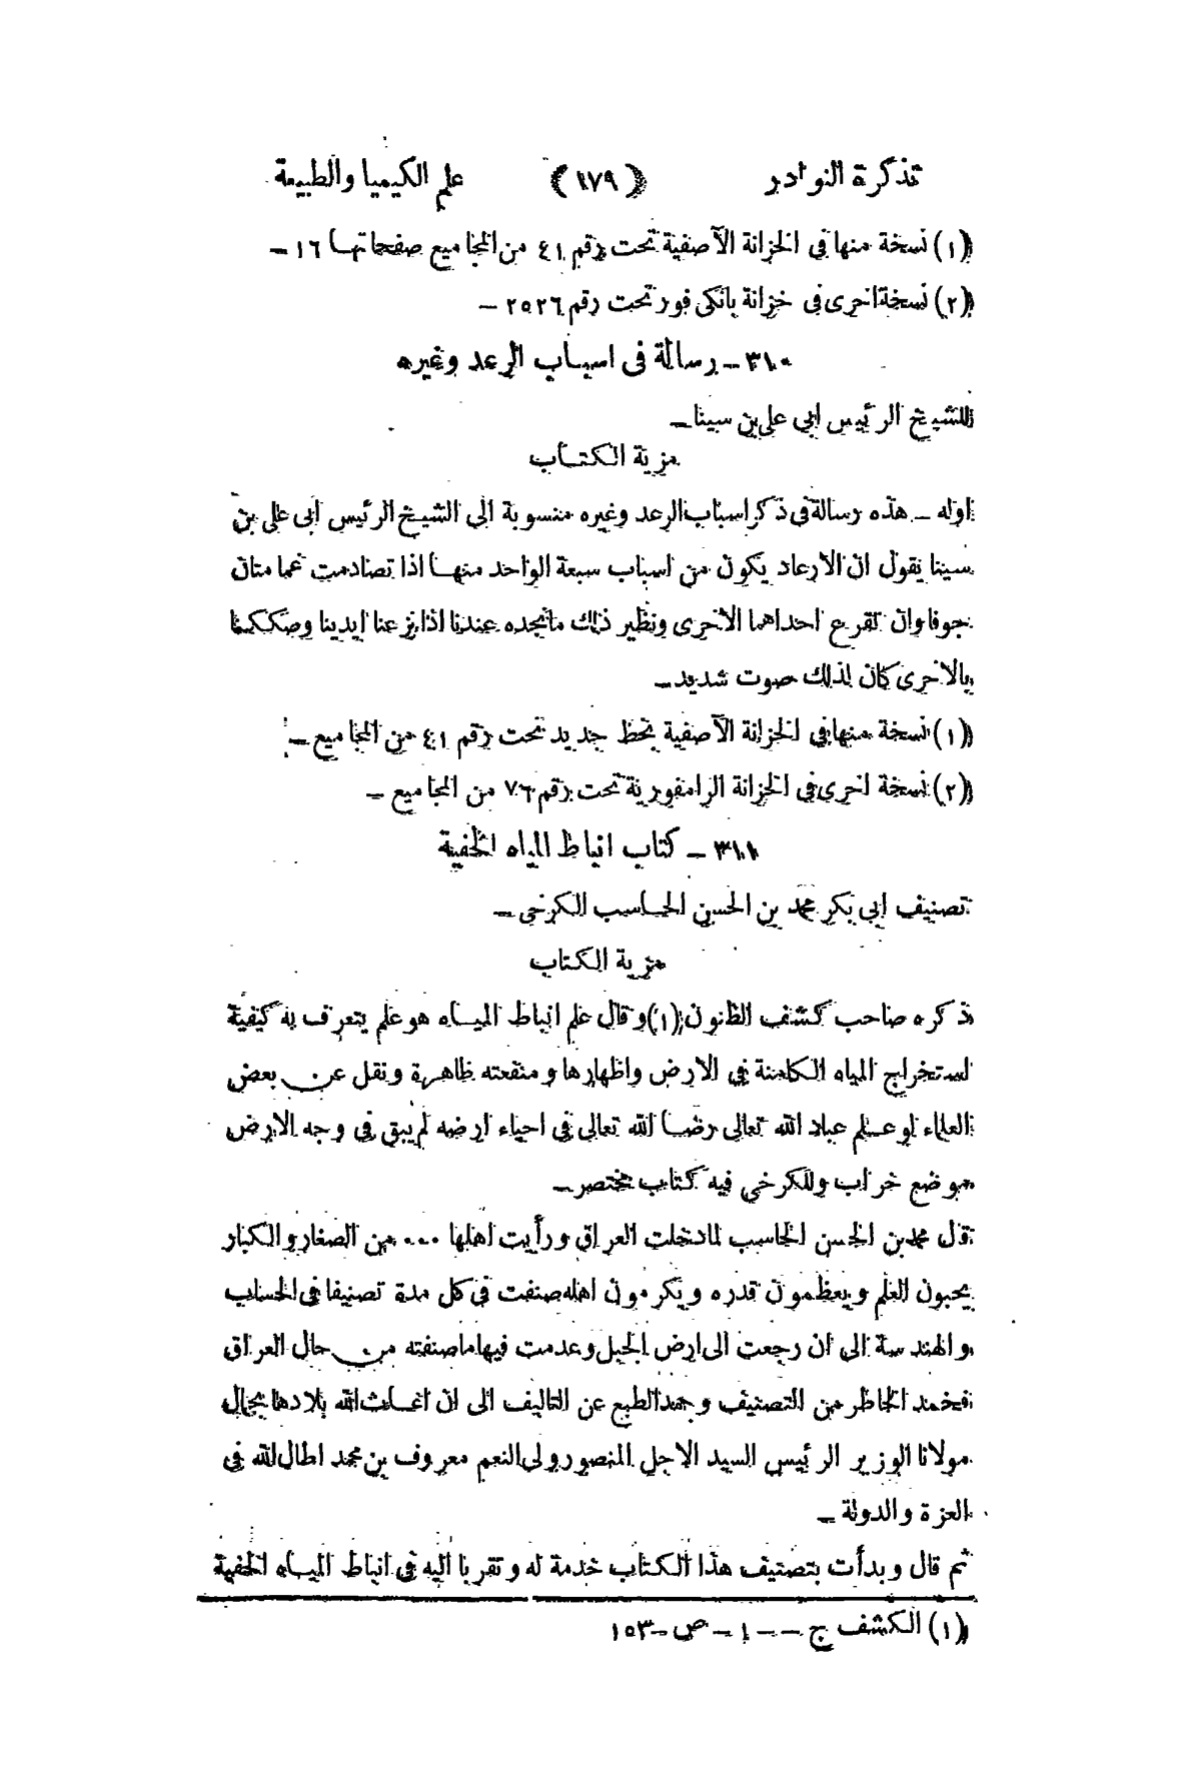 تذكرة النوادر (١٧٩) علم الكيميا والطبيعة
(١) نسخة منها في الخزانة الآصفية تحت رقم ٤١ من المجاميع صفحاتها ١٦ –
(٢) نسخة اخرى فى خزانة بانكى فور تحت رقم ٢٥٢٦ –
٣١٠ – رسالة فى اسباب الرعد وغيره
للشيخ الرئيس ابي على بن سينا –
مزية الكتاب
اوله – هذه رسالة فى ذكر اسباب الرعد وغيره منسوبة الى الشيخ الرئيس ابى على بن
سينا يقول ان الارعاد يكون من اسباب سبعة الواحد منها اذا تصادمت غمامتان
جوفاوان تقرع احداهما الاخرى ونظير ذلك ما نجده عندنا اذا نزعنا ايدينا وصككنا
بالاخرى كان لذلك صوت شديد –
(١) نسخة منها في الخزانة الآصفية بخط جديد تحت رقم ٤١ من المجاميع –
(٢) نسخة اخرى فى الخزانة الرامفورية تحت رقم ٧٦ من المجاميع –
٣١١ – كتاب انباط المياه الخفية
تصنيف ابي بكر محمد بن الحسن الحاسب الكرخى –
مزية الكتاب
ذكره صاحب كشف الظنون (١) وقال علم انباط المياه هو علم يتعرف به كيفية
استخراج المياه الكامنة في الارض واظهارها ومنفعته ظاهرة ونقل عن بعض
العلماء لو علم عباد الله تعالى رضا الله تعالى في احياء ارضه لم يبق في وجه الارض
موضع خراب وللكرخي فيه كتاب مختصر –
قال محمد بن الحسن الحاسب لما دخلت العراق ورأيت اهلها ... من الصغار والكبار
يحبون العلم ويعظمون قدره ويكرمون اهله صنفت في كل مدة تصنيفا في الحساب
والهندسة الى ان رجعت الى ارض الجبل وعدمت فيها ما صنفته من حال العراق
فخمد الخاطر من التصنيف وجمد الطبع عن التاليف الى ان اغاث الله بلادها بجمال
مولانا الوزير الرئيس السيد الاجل المنصور ولى النعم معروف بن محمد اطال الله في
العزة والدولة –
ثم قال وبدأت بتصنيف هذا الكتاب خدمة له وتقربا اليه في انباط المياه الخفية
(١) الكشف ج – – ١ – ص – ١٥٣